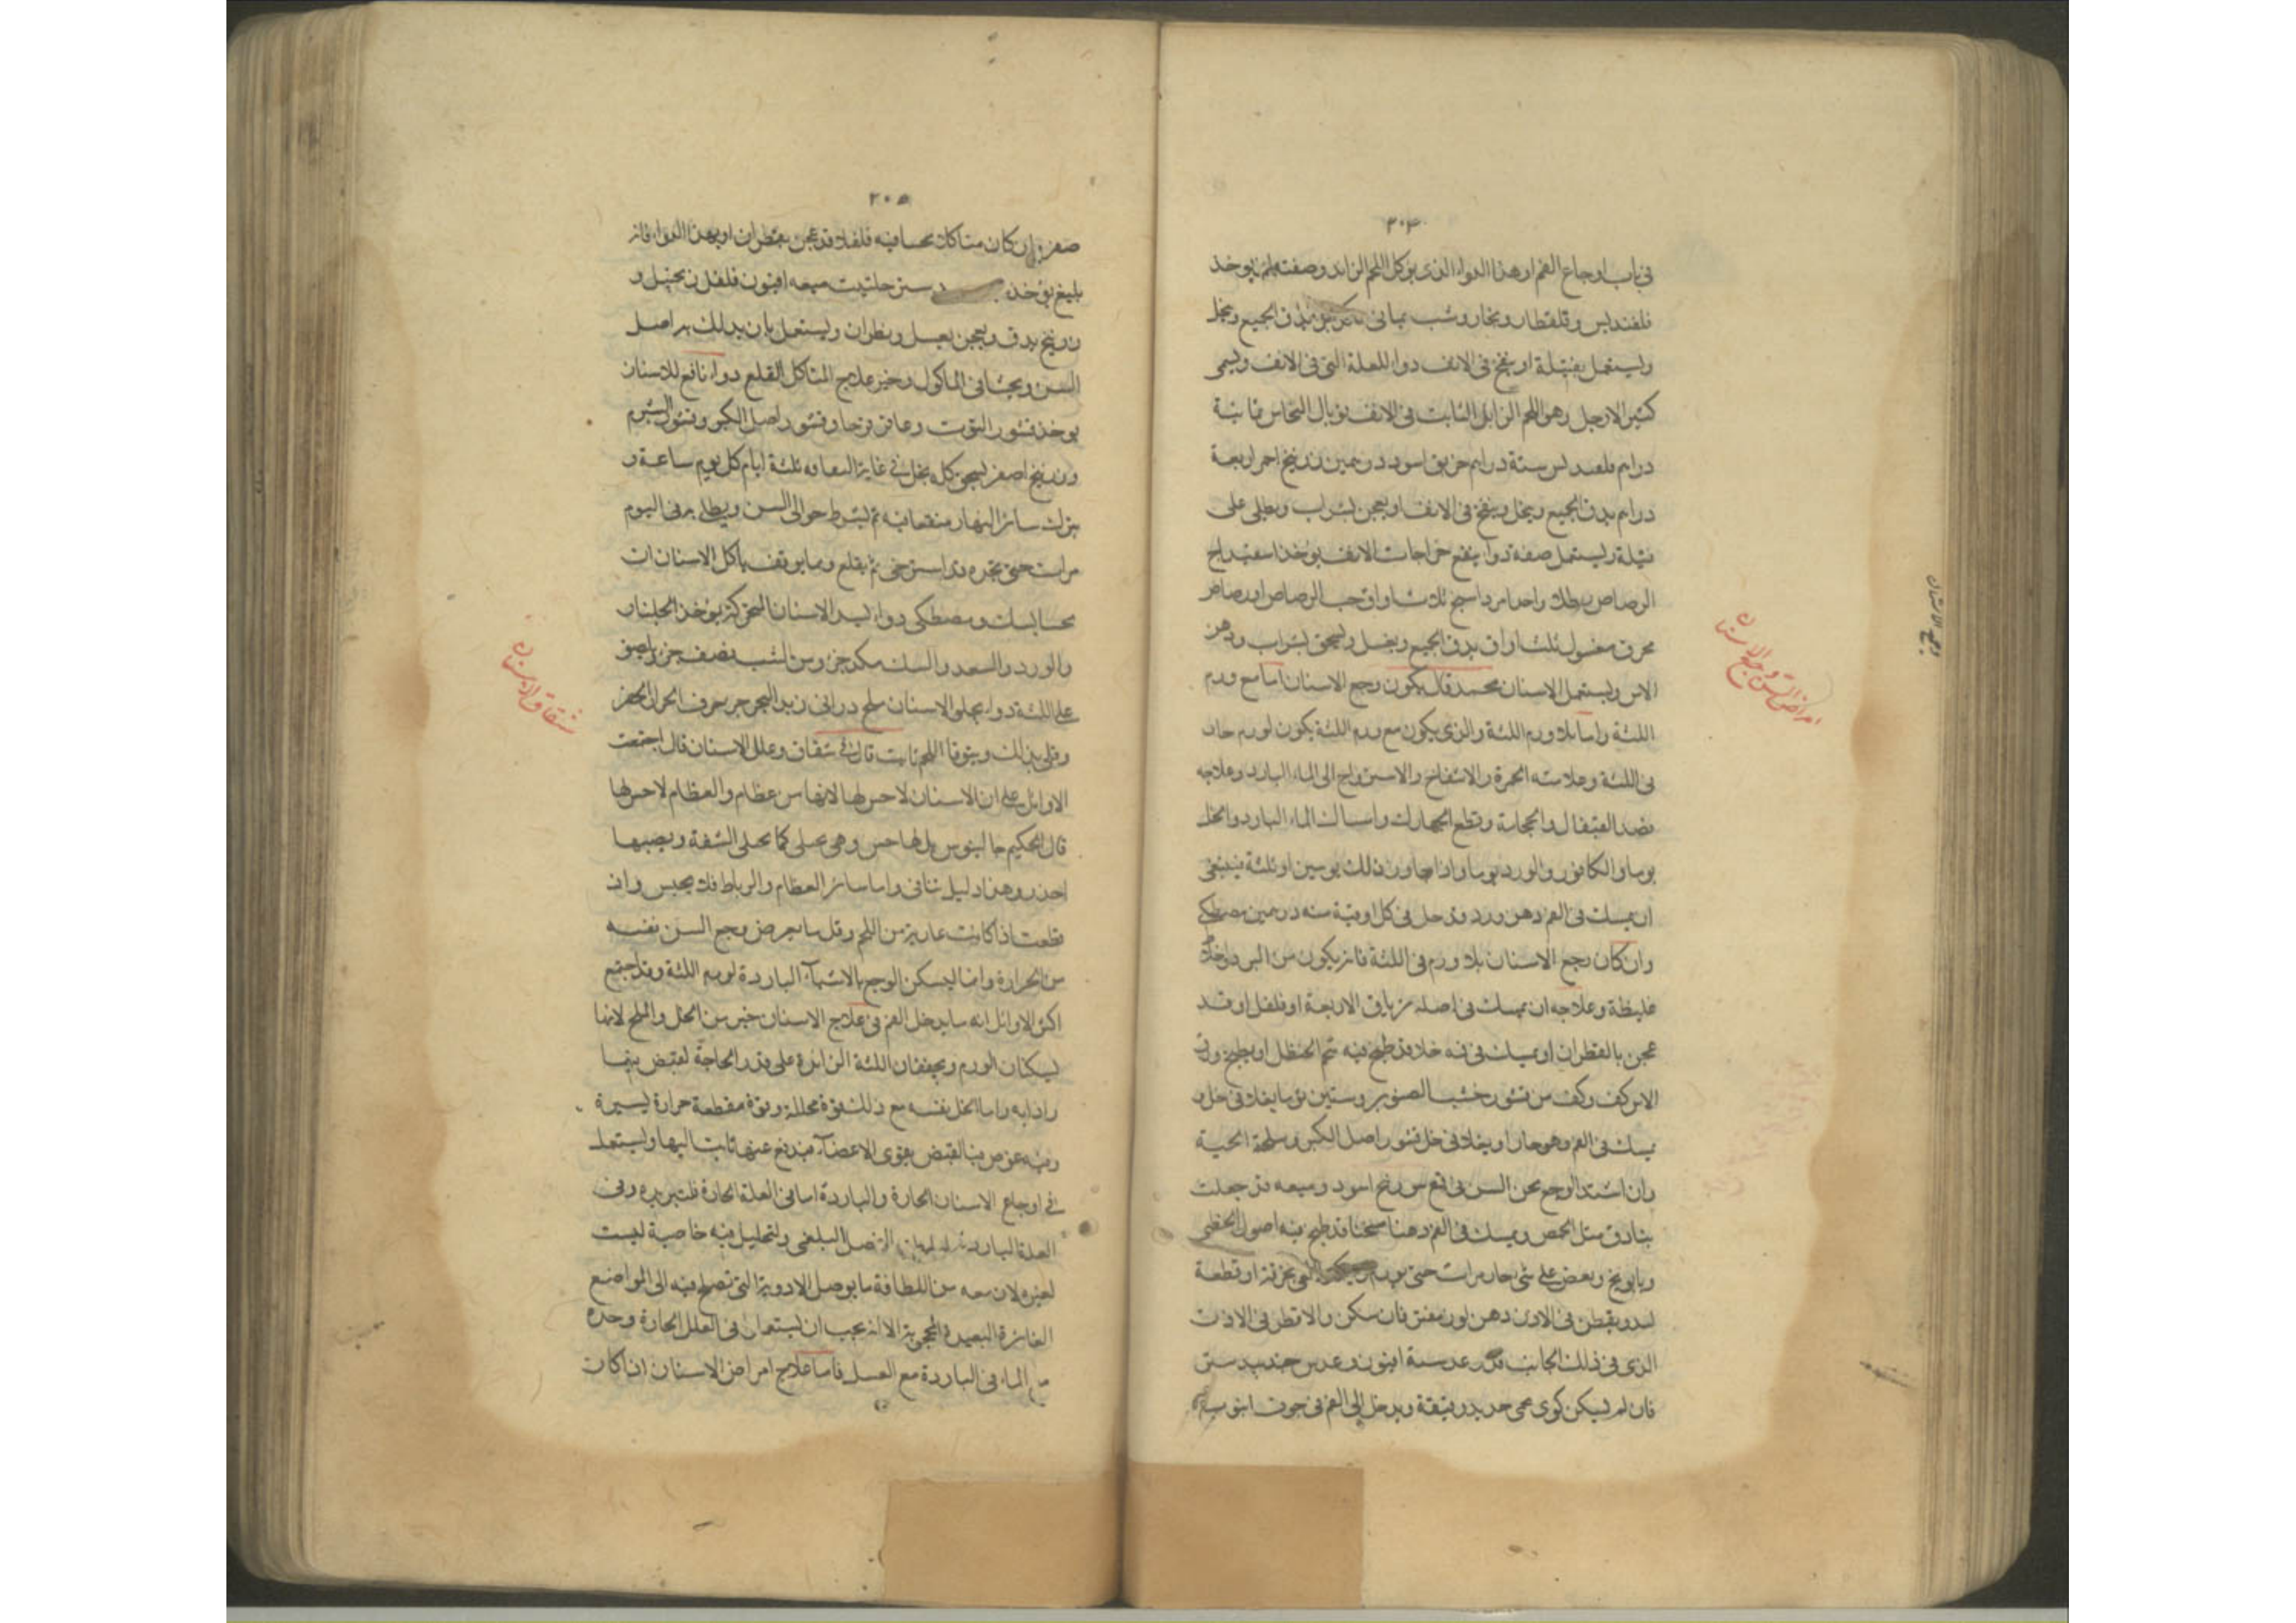 ٢٠٤
في باب اوجاع الفم او هذا الدواء الذي يوكل اللحم الزايد وصفته يوخذ
قلقنديس وقلقطار وزنجار وشب يماني يدق الجميع وينخل
ويستعمل بفتيلة او ينفخ في الانف دواء للعلة التي في الانف ويسمى
كثير الارجل وهو اللحم الزايد النابت في الانف توبال النحاس ثمانية
دراهم ستة دراهم خربق اسود درهمين زرنيخ احمر اربعة
دراهم يدق الجميع وينخل وينفخ في الانف او يعجن بشراب ويطلى على
فتيلة ويستعمل صفة دواء ينفع خراجات الانف يوخذ اسفيداج
الرصاص رطلا واحدا مرداسنج ثلث اواق خبث الرصاص او رصاص
محرق مغسول ثلث اواق يدق الجميع وينخل ويسحق بشراب ودهن
الاس ويستعمل الاسنان محمد قال يكون وجع الاسنان اما مع ورم
اللثة واما بلا ورم اللثة والذي يكون مع ورم اللثة يكون لورم حار
في اللثة وعلامته الحمرة والانتفاخ والاسترواح الى الماء البارد وعلاجه
فصد القيفال والحجامة وقطع الجهارك وامساك الماء البارد والخل
يوما والكافور والورد يوما واذا جاوز ذلك يومين او ثلثة فينبغي
ان يمسك في الفم دهن ورد قد حل في كل اوقية منه درهمين مصطكى
وان كان وجع الاسنان بلا ورم في اللثة فانه يكون من البرد
غليظة وعلاجه ان يمسك في اصله ترياق الاربعة او فلفل او قد
عجن بالقطران او يمسك في فمه خلا قد طبخ فيه شحم الحنظل او يطبخ ورق
الاس كف وكف من قشور خشب الصنوبر وستين ثوما يغلا في خل و
يمسك في الفم وهو حار او يغلا في خل قشور اصل الكبر وسلخة الحية
وان اشتد الوجع سخن السن في اسود وميعه قد جعلت
بنادق مثل الحمص ويمسك في الفم دهنا مسخنا قد طبخ فيه اصول الخطمي
وبابونج ويعض على شي حار مرات حتى يورم بخرقة او قطعة
لبد ويقطر في الاذن دهن لوز مفتر فان سكن والا قطر في الاذن
الذي في ذلك الجانب قدر عدسة افيون وعدس جندبيدستر
فان لم يسكن كوي حمي حديد دقيقة ويدخل الى الفم في جوف انبوبة
امراض السن وجع الاسنان
وجع الاسنان
٢٠٥
صفر وان كان متاكلا يحشا فيه فلفلا قد عجن بقطران او بهذا الدواء فانه
بليغ يوخذ دستر حلتيت ميعه افيون فلفل زنجبيل و
زرنيخ يدق ويعجن بعسل وقطران ويستعمل بان يدلك به اصل
السن ويحشا في الماكول وخير علاج المتاكل القلع دواء نافع للاسنان
يوخذ قشور التوت وعاقرقرحا وقشور اصل الكبر وقشور الشبرم
وزرنيخ اصفر يسحق كله بخل في غاية الثقافه ثلثة ايام كل يوم ساعة و
يترك سائر النهار منقعا فيه ثم يشرط حوالى السن ويطلى به في اليوم
مرات حتى تجده قد استرخى ثم يقلع ومما يوقف تاكل الاسنان ان
تحشا بسك ومصطكى دواء ليد الاسنان المتحركة يوخذ الجلنار
والورد والسعد والسك مكد جزء ومن الشب نصف جزء يلصق
على اللثة دواء يجلى الاسنان ملح دراني زبد البحر خزف الحرق الخضر
وقلى يدلك ويتوقا اللحم ثابت قال في شقاق وعلل الاسنان قال اجتمعت
الاوائل على ان الاسنان لا حس لها لانها من عظام والعظام لا حس لها
قال الحكيم جالينوس بل لها حس وهي تختلج كما تختلج الشفة ويصيبها
خدر وهذا دليل ثاني واما سائر العظام والرباط فلا تحس وان
قطعت اذا كانت عارية من اللحم وقل ما يعرض وجع السن نفسه
من الحرارة وانما يسكن الوجع بالاشياء الباردة لورم اللثة وقد اجتمع
اكثر الاوائل انه ما يدخل الفم في علاج الاسنان خير من الخل والملح لانهما
يسكنان الورم ويجففان اللثة الزائدة على قدر الحاجة لقبض فيهما
واذابه واما الخل نفسه مع ذلك قوة محللة وقوة مقطعة حرارة يسيرة
وفيه عوض من القبض يقوى الاعضاء فيدفع عنها ثابت اليها ويستعمل
في اوجاع الاسنان الحارة والباردة اما في العلة الحارة فلتبريده وفي
العلة الباردة الفضل البلغمي ولتحليل فيه خاصية ليست
لغيره لان معه من اللطافة ما يوصل الادوية التي تصلح فيه الى المواضع
الغائرة البعيدة الا انه يجب ان يستعمل في العلل الحارة وحده
مع الماء في الباردة مع العسل فاما علاج امراض الاسنان ان كان
شقاق الاسنان